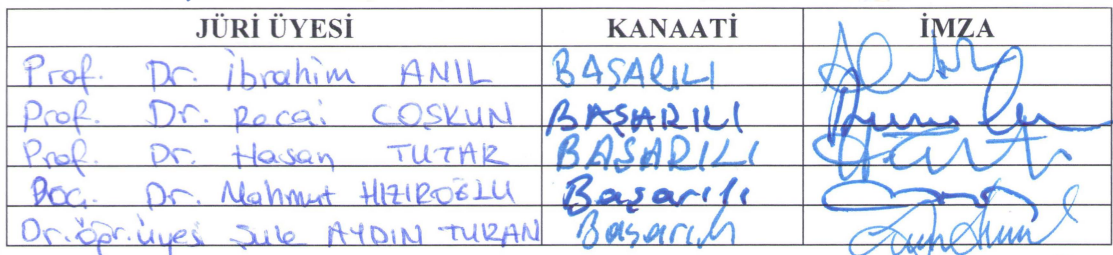 JÜRİ ÜYESİ KANAATİ İMZA
Prof. Dr. İbrahim ANIL BAŞARILI
Prof. Dr. Recai COŞKUN BAŞARILI
Prof. Dr. Hasan TUTAR BAŞARILI
Doç. Dr. Mahmut HIZIROĞLU Başarılı
Dr. öğr. üyesi Şule AYDIN TURAN Başarılı